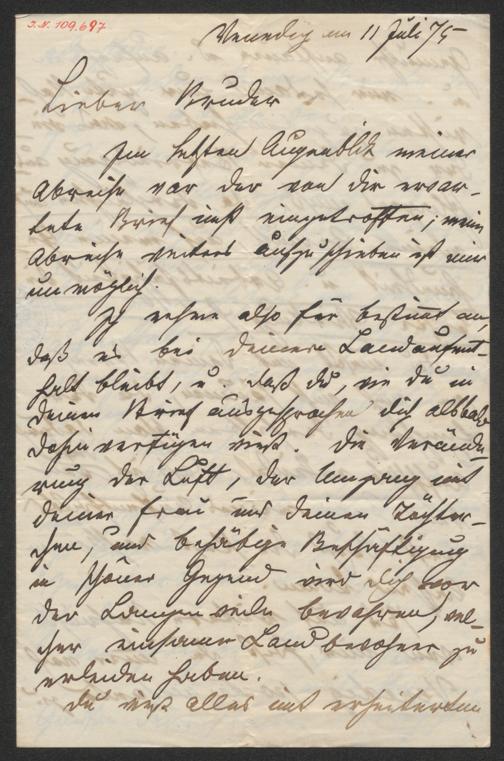 J.N. 109.697
Venedig am 11 Juli 75
Lieber Bruder
Im letzten Augenblik meiner
Abreise war der von dir erwar-
tete Brief nicht eingetroffen; meine
Abreise weiters aufzuschieben ist mir
unmöglich.
Ich nehme also für bestimt an,
daß es bei deinem Landaufent-
halt bleibt, u. daß du, wie du in
deinem Brief ausgesprochen dich alsbald
dahin verfügen wirst. Die Verände-
rung der Luft, der Umgang mit
deiner Frau und deinen Töchter-
chen, und behäbige Beschäftigung
in schöner Gegend wird dich vor
der Langenweile bewahren, wel-
cher einsame Landbewohner zu
erleiden haben.
Du wirst alles mit erheiterten